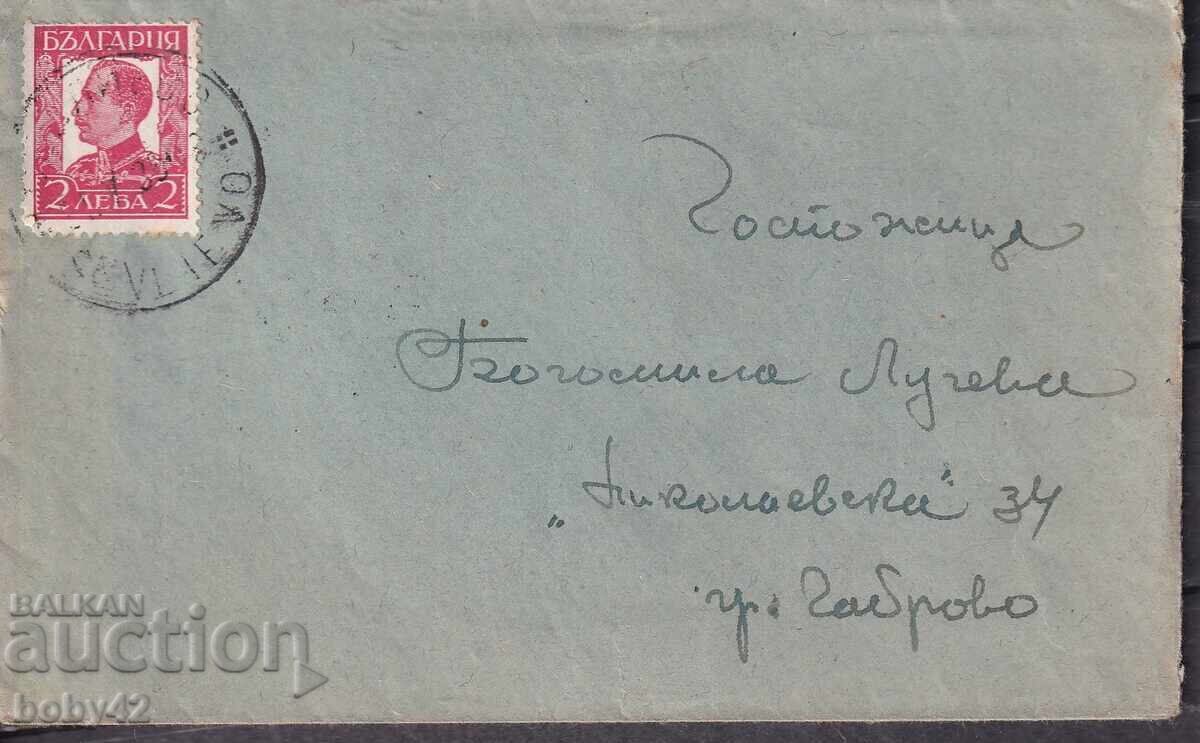 БЪЛГАРИЯ
2 ЛЕВА. 2
SEVLIEVO
Госпожица
Богомила Лучева
„Николаевска“ 34
гр. Габрово
BALKAN
auction
boby42